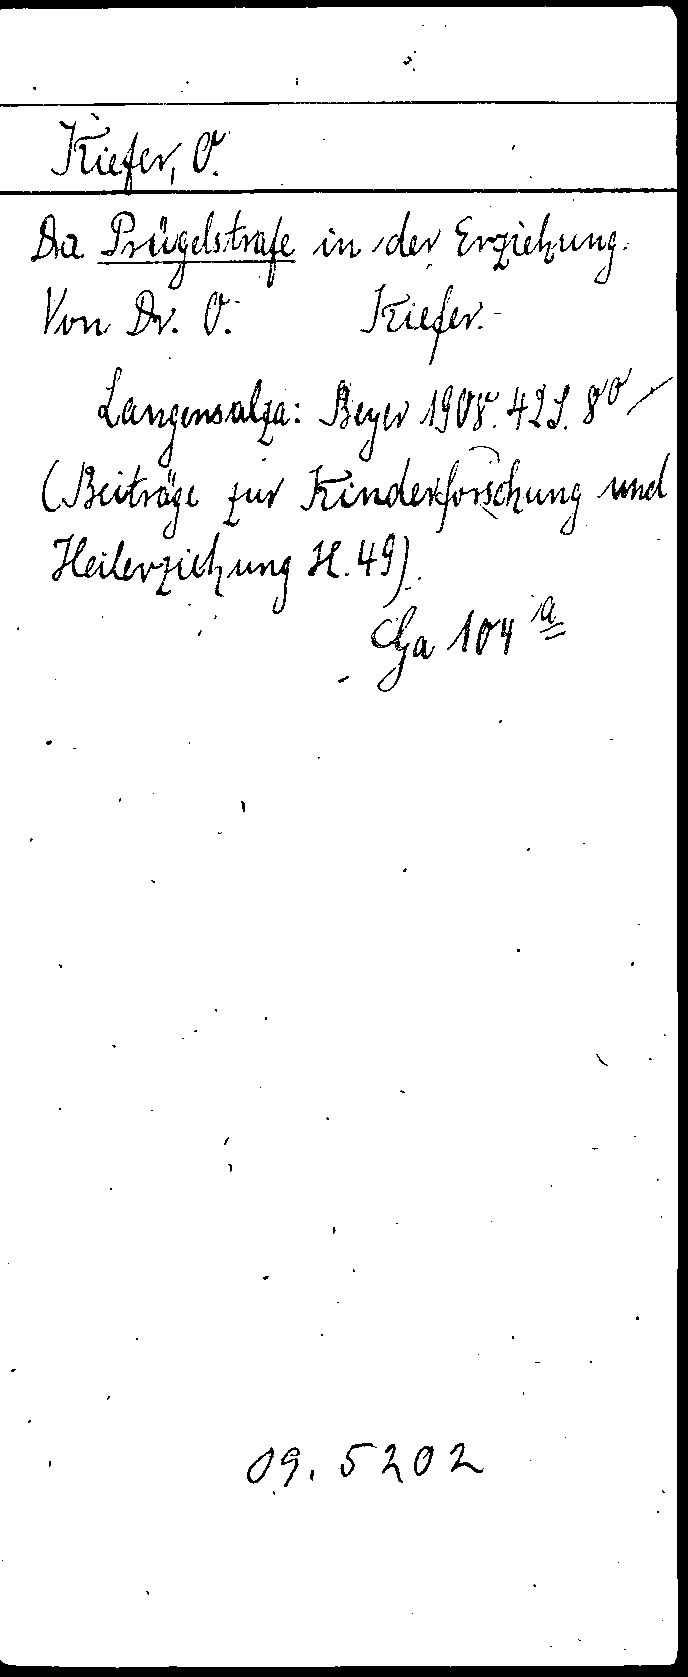 Kiefer, O.
Da Prügelstrafe in der Erziehung.
Von Dr. O. Kiefer.-
Langensalza: Beyer 1908. 42 S. 8°
(Beiträge zur Kinderforschung und
Heilerziehung H. 49).
Ga 104 a
09.5202